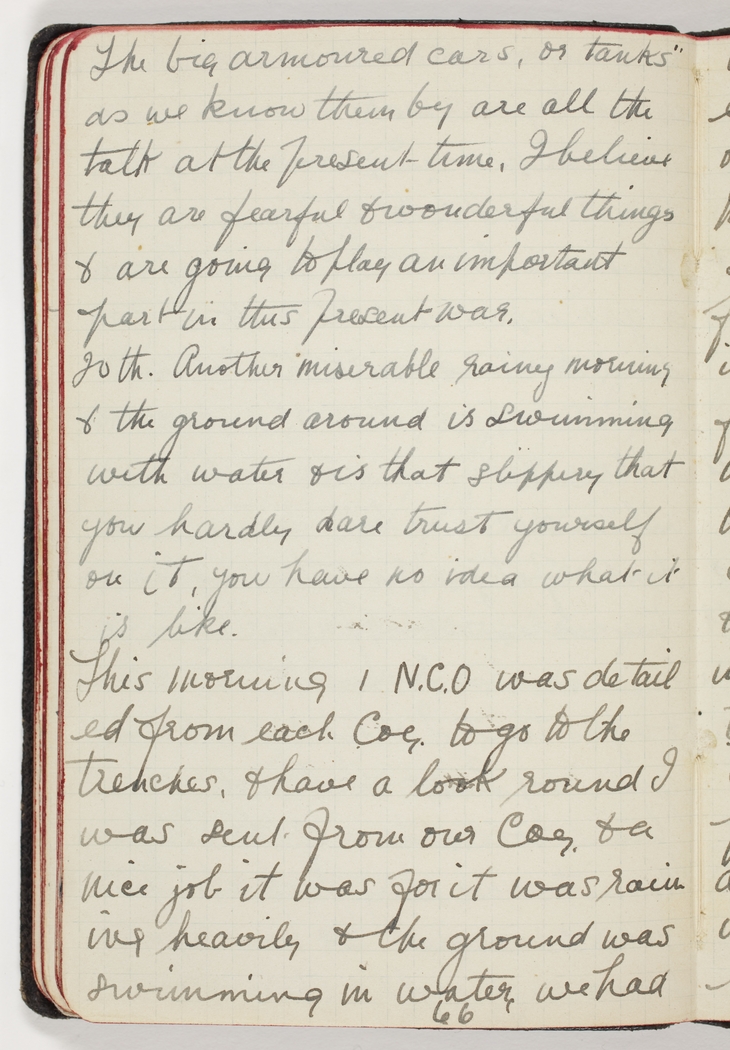 The big armoured cars, or tanks"
as we know them by are all the
talk at the present time, I believe
they are fearful & wonderful things
& are going to play an important
part in this present war.
20th. Another miserable rainy morning
& the ground around is swimming
with water & is that slippery that
you hardly dare trust yourself
on it, you have no idea what it
is like.
This morning 1 N.C.O was detail
ed from each Coy. to go to the
trenches, & have a look round I
was sent from our Coy, & a
nice job it was for it was rain
ing heavily & the ground was
swimming in water, we had
66